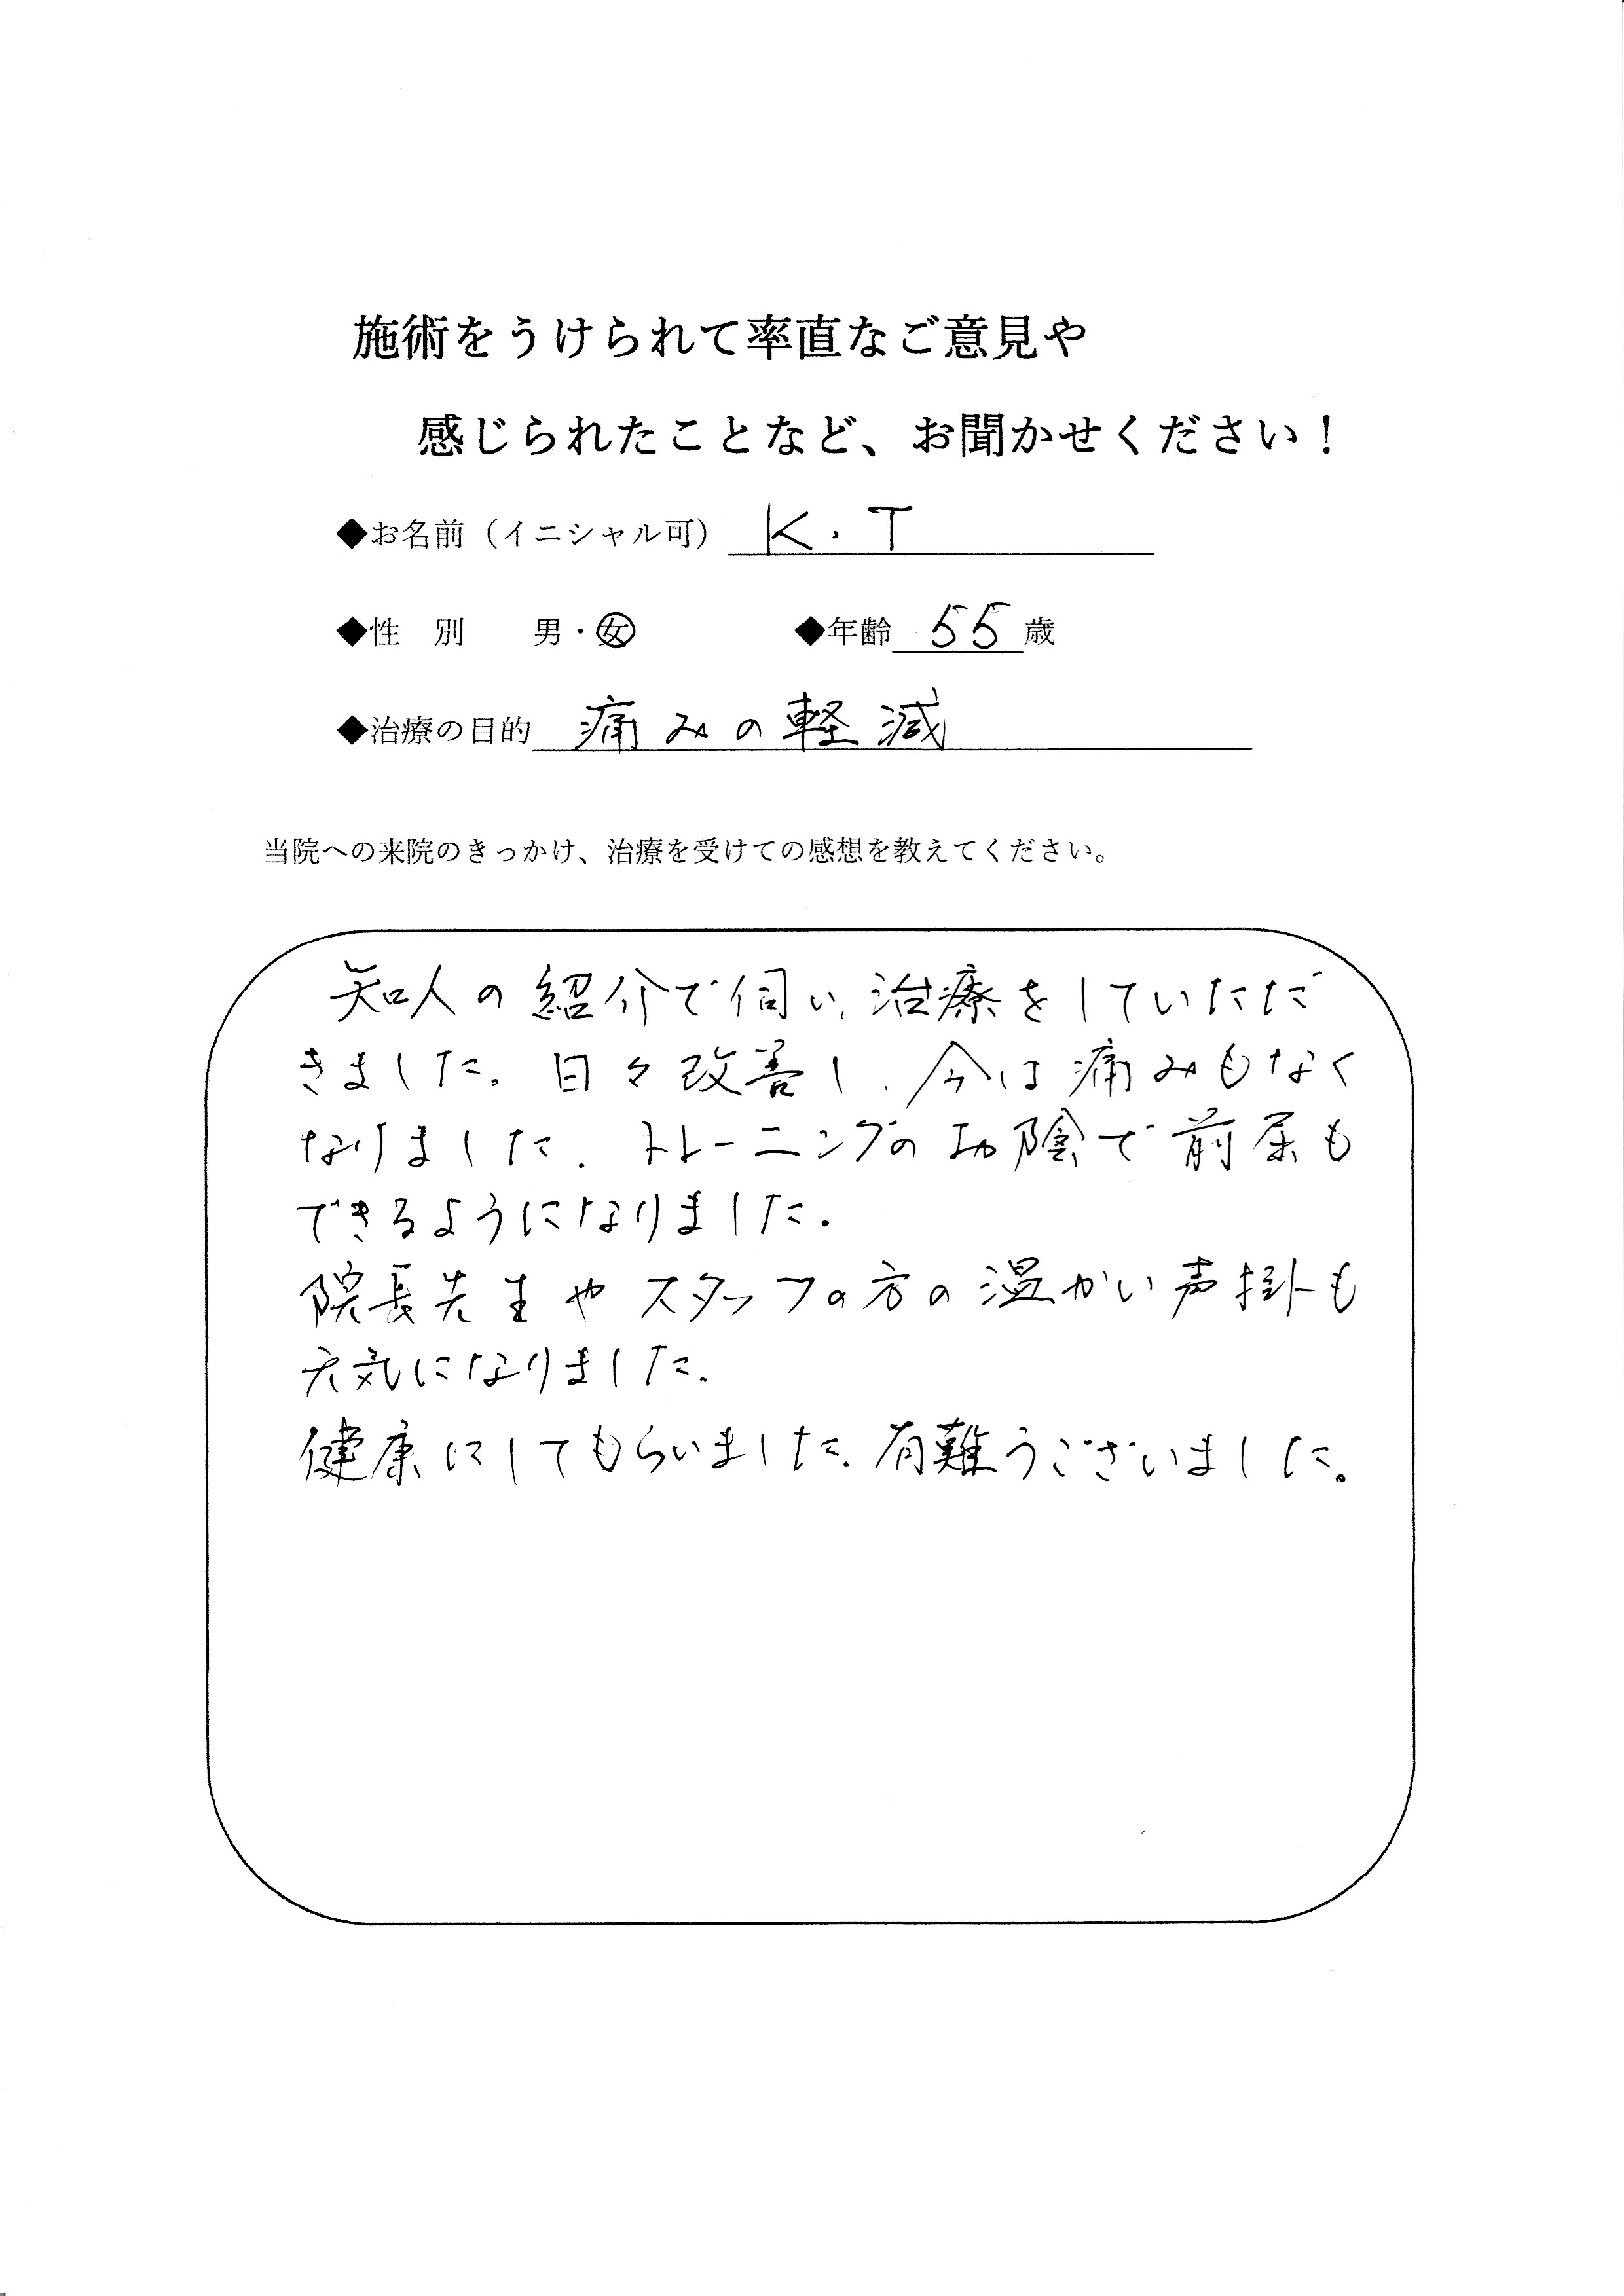 施術をうけられて率直なご意見や
感じられたことなど、お聞かせください！
◆お名前（イニシャル可） K.T
◆性 別 男・女 ◆年齢 55 歳
◆治療の目的 痛みの軽減
当院への来院のきっかけ、治療を受けての感想を教えてください。
知人の紹介で伺い、治療をしていただ
きました。日々改善し、今は痛みもなく
なりました。トレーニングのお陰で前屈も
できるようになりました。
院長先生やスタッフの方の温かい声掛も
元気になりました。
健康にしてもらいました。有難うございました。